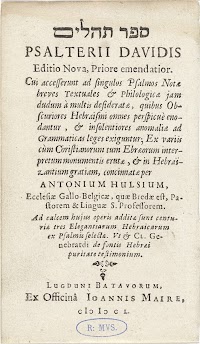 ספר תהלים
PSALTERII DAVIDIS
Editio Nova, Priore emendatior.
Cui accesserunt ad singulos Psalmos Notæ
breves Textuales & Philologicæ jam
dudum à multis desideratæ, quibus Ob-
scuriores Hebraismi omnes perspicuè eno-
dantur, & insolentiores anomaliæ ad
Grammaticæ leges exiguntur, Ex variis
cùm Christianorum tum Ebræorum inter-
pretum monumentis erutæ, & in Hebrai-
zantium gratiam, concinnatæ per
ANTONIUM HULSIUM,
Ecclesiæ Gallo-Belgicæ, quæ Bredæ est, Pa-
storem & Linguæ S. Professorem.
Ad calcem hujus operis addita sunt centu-
ria tres Elegantiarum Hebraicarum
ex Psalmis selectæ. Ut & Cl. Ge-
nebrardi de fontis Hebræi
puritate testimonium.
LUGDUNI BATAVORUM,
Ex Officinâ IOANNIS MAIRE,
R: MVS.